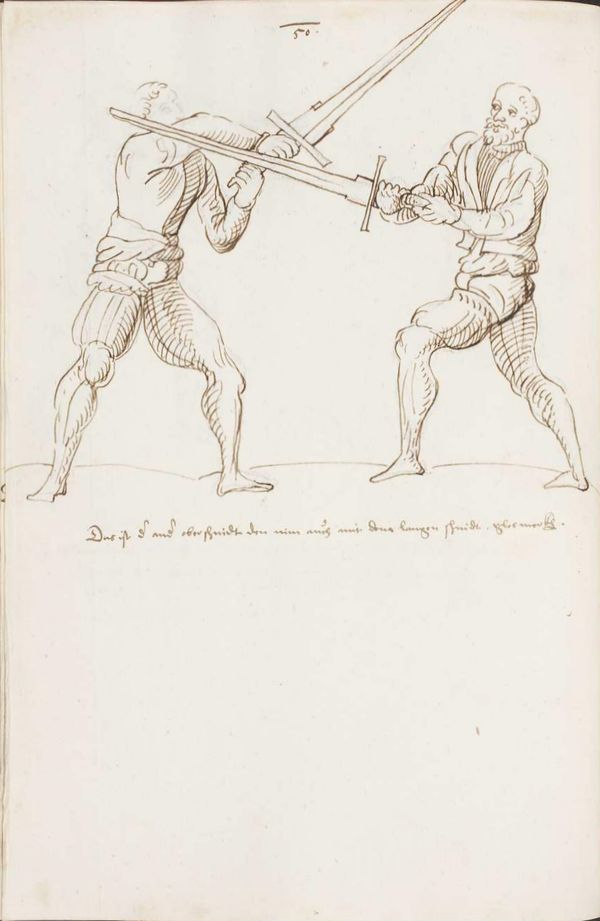 50.
Das ist d' and' oberschnidt den nim auch mit dem langen schnidt. glos merck.